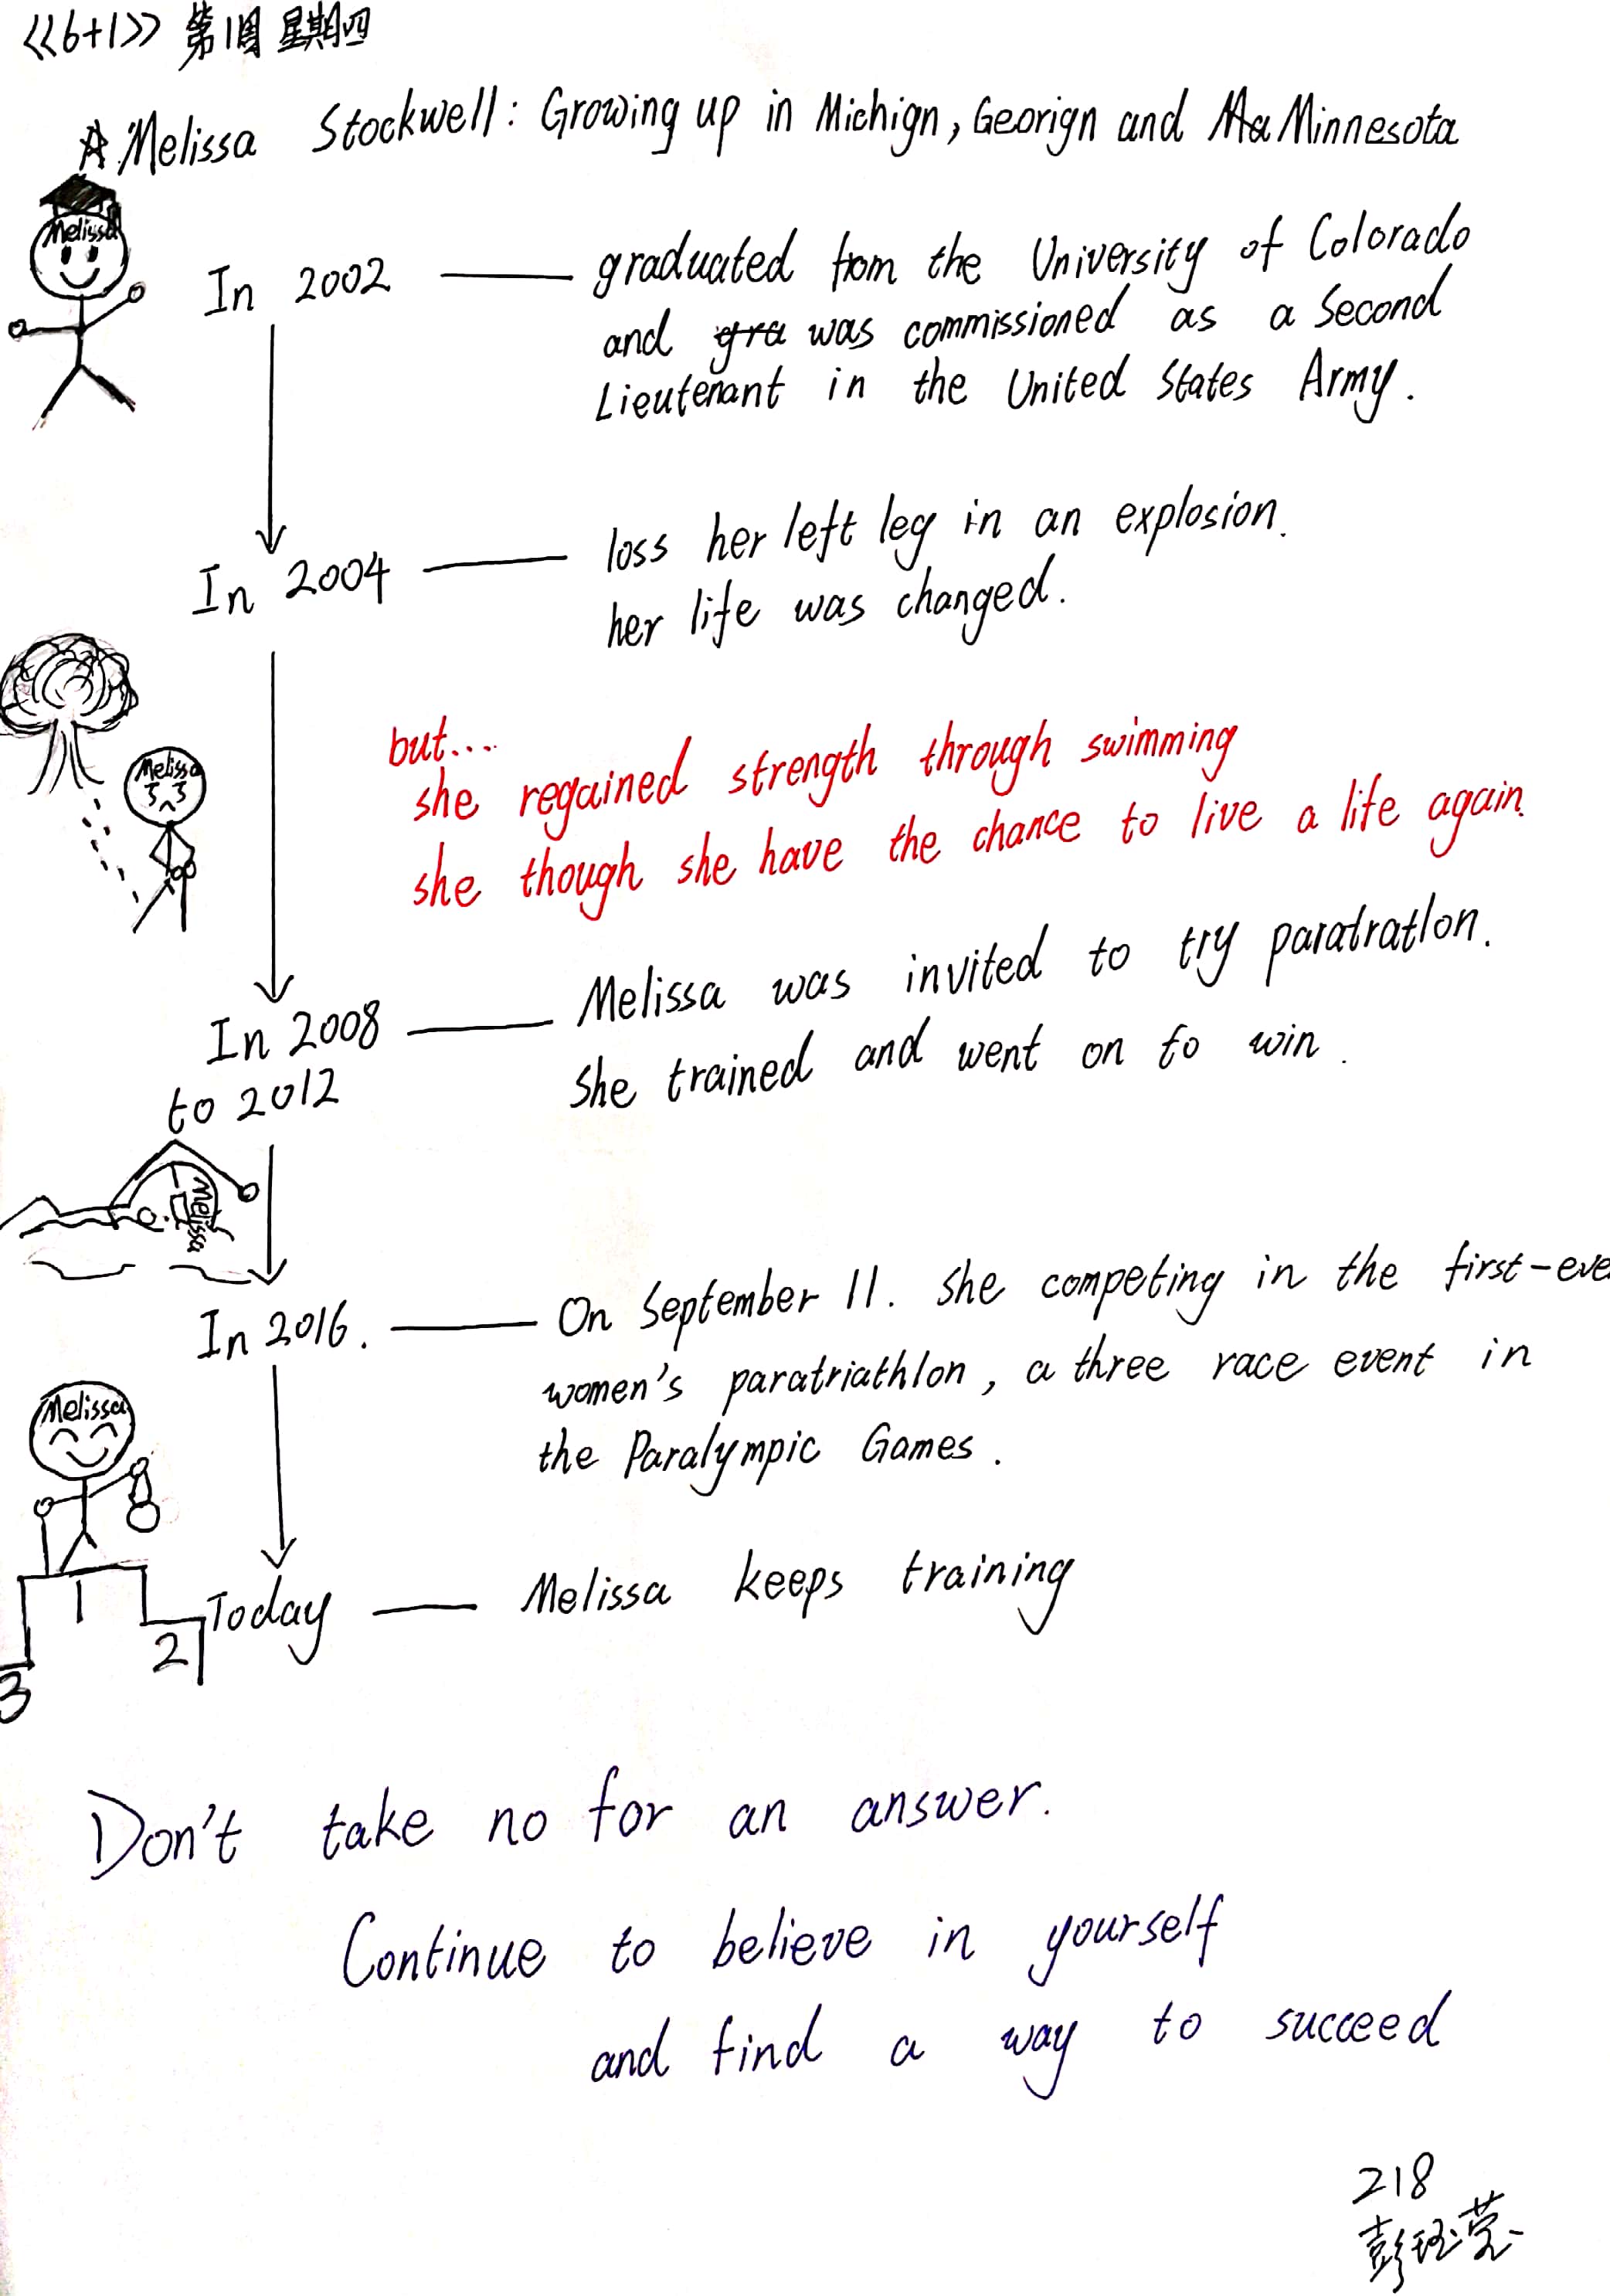 《6+1》 第1周 星期四
☆ Melissa Stockwell: Growing up in Michign, Georign and Ma Minnesota
Melissa
In 2002 — graduated from the University of Colorado
and gra was commissioned as a Second
Lieutenant in the United States Army.
In 2004 — loss her left leg in an explosion.
her life was changed.
Melissa
but....
she regained strength through swimming
she though she have the chance to live a life again.
In 2008 — Melissa was invited to try paratratlon.
to 2012
She trained and went on to win.
Melissa
In 2016. — On September 11. she competing in the first-eve
women's paratriathlon, a three race event in
the Paralympic Games.
Melissa
Today — Melissa keeps training
1
2
3
Don't take no for an answer.
Continue to believe in yourself
and find a way to succeed
218
彭